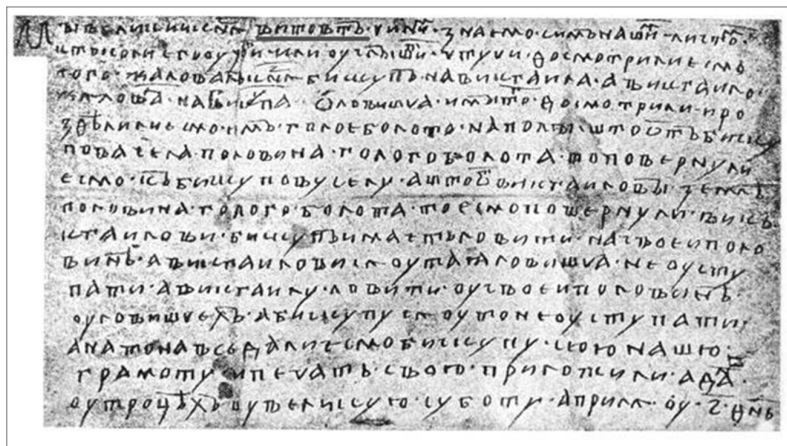 Мы великии кнѧз витовтъ чиним · знаемо · симъ нашим · листом ·
кто коли єго оузри · или оуслышит · чтучи · досмотрили єсмъ
того · жаловалъсѧ бискупъ · на викстаила · а викстаило ·
жаловал · на бискупа · о ловища · и мы то · досмотрили · и ро
здѣлили єсмо · имъ · голоє болото · на полы · што отъ биску
пова села · половина · голого болота · то повернули
єсмо · къ бискупову селу · а што от викстаиловы землѣ
половина · голого · болота · то єсмо повернули · викъ
стаилови · бискупъ имаєтъ ловити · на своєи поло
винѣ · а викстаилови сѧ оу та ловища · не оусту
пати · а викстаилу · ловити · оу своєи половинѣ ·
оу ловищехъ · а бискупу сѧ оу то не оуступати ·
а на то на всє дали єсмо бискупу · сюю нашю ·
грамоту · и печать · свою · приложили · а дан ·
оу троцѣхъ оу великую · суботу · априлѧ · оу · з · днь